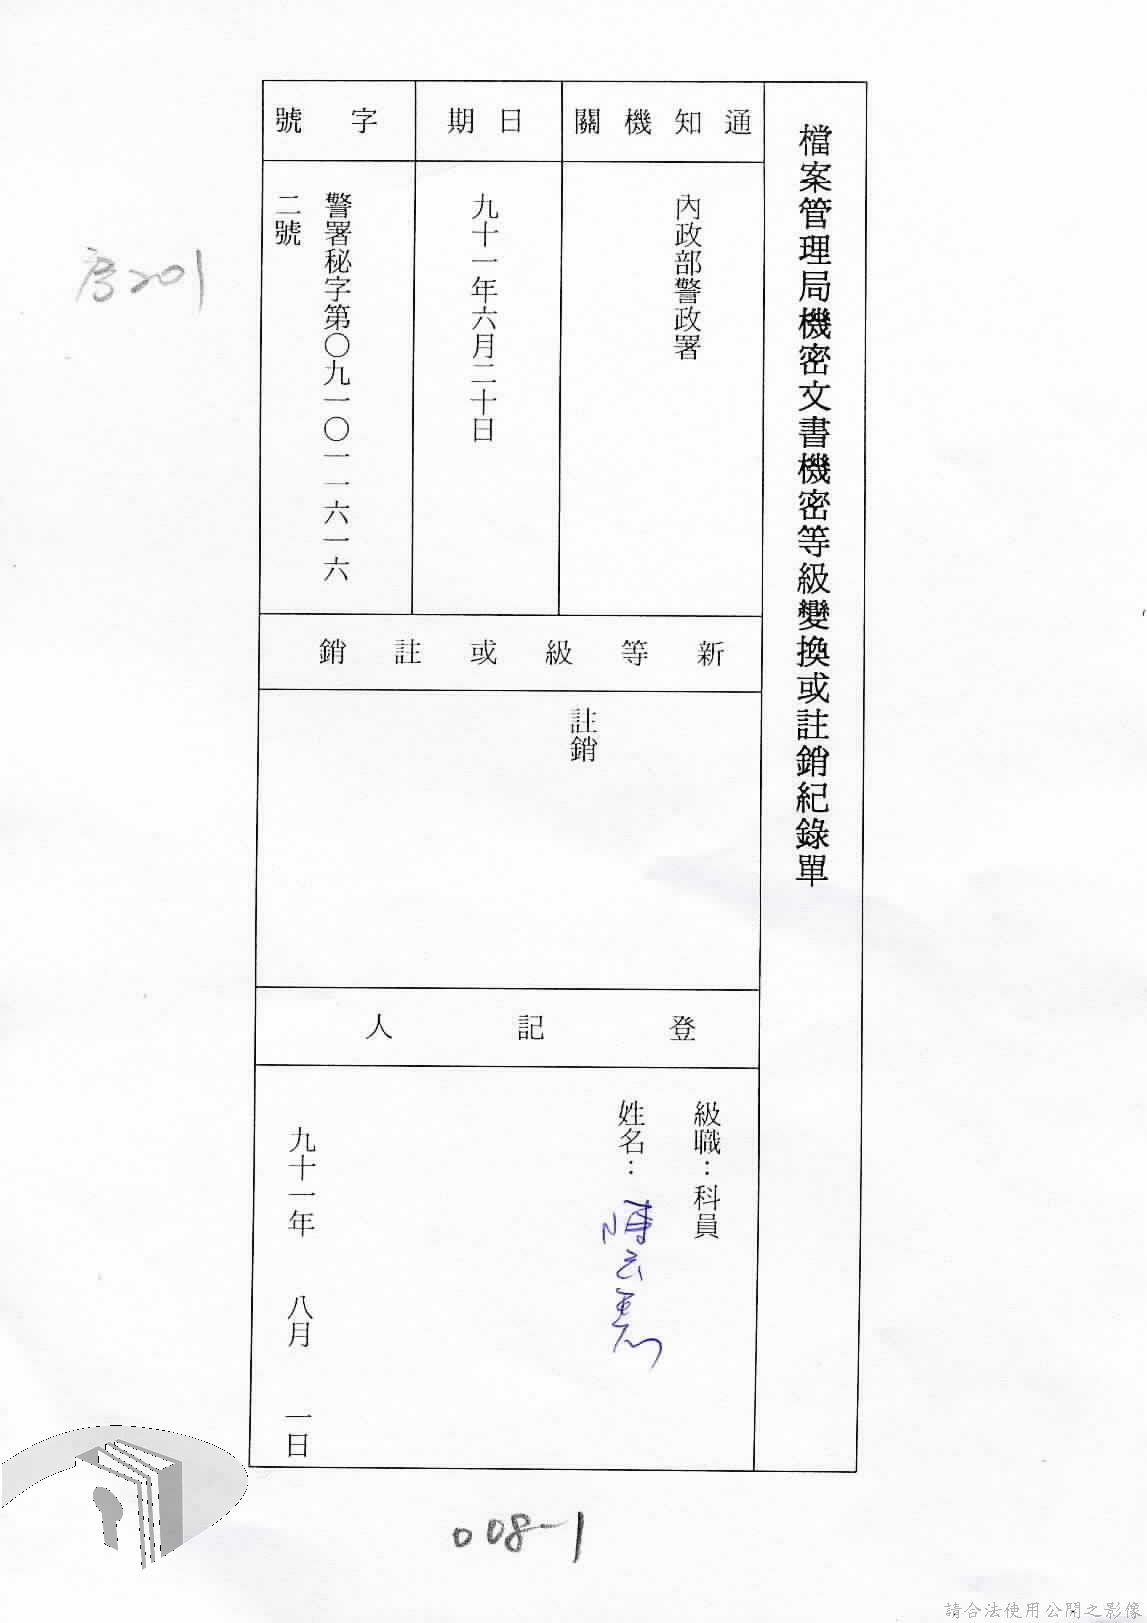 檔案管理局機密文書機密等級變換或註銷紀錄單
通知機關
內政部警政署
日期
九十一年六月二十日
字號
警署秘字第〇九一〇一一六一六
二號
新等級或註銷
註銷
登記人
級職：科員
姓名：陳云
九十一年 八月 一日
201
008-1
請合法使用公開之影像